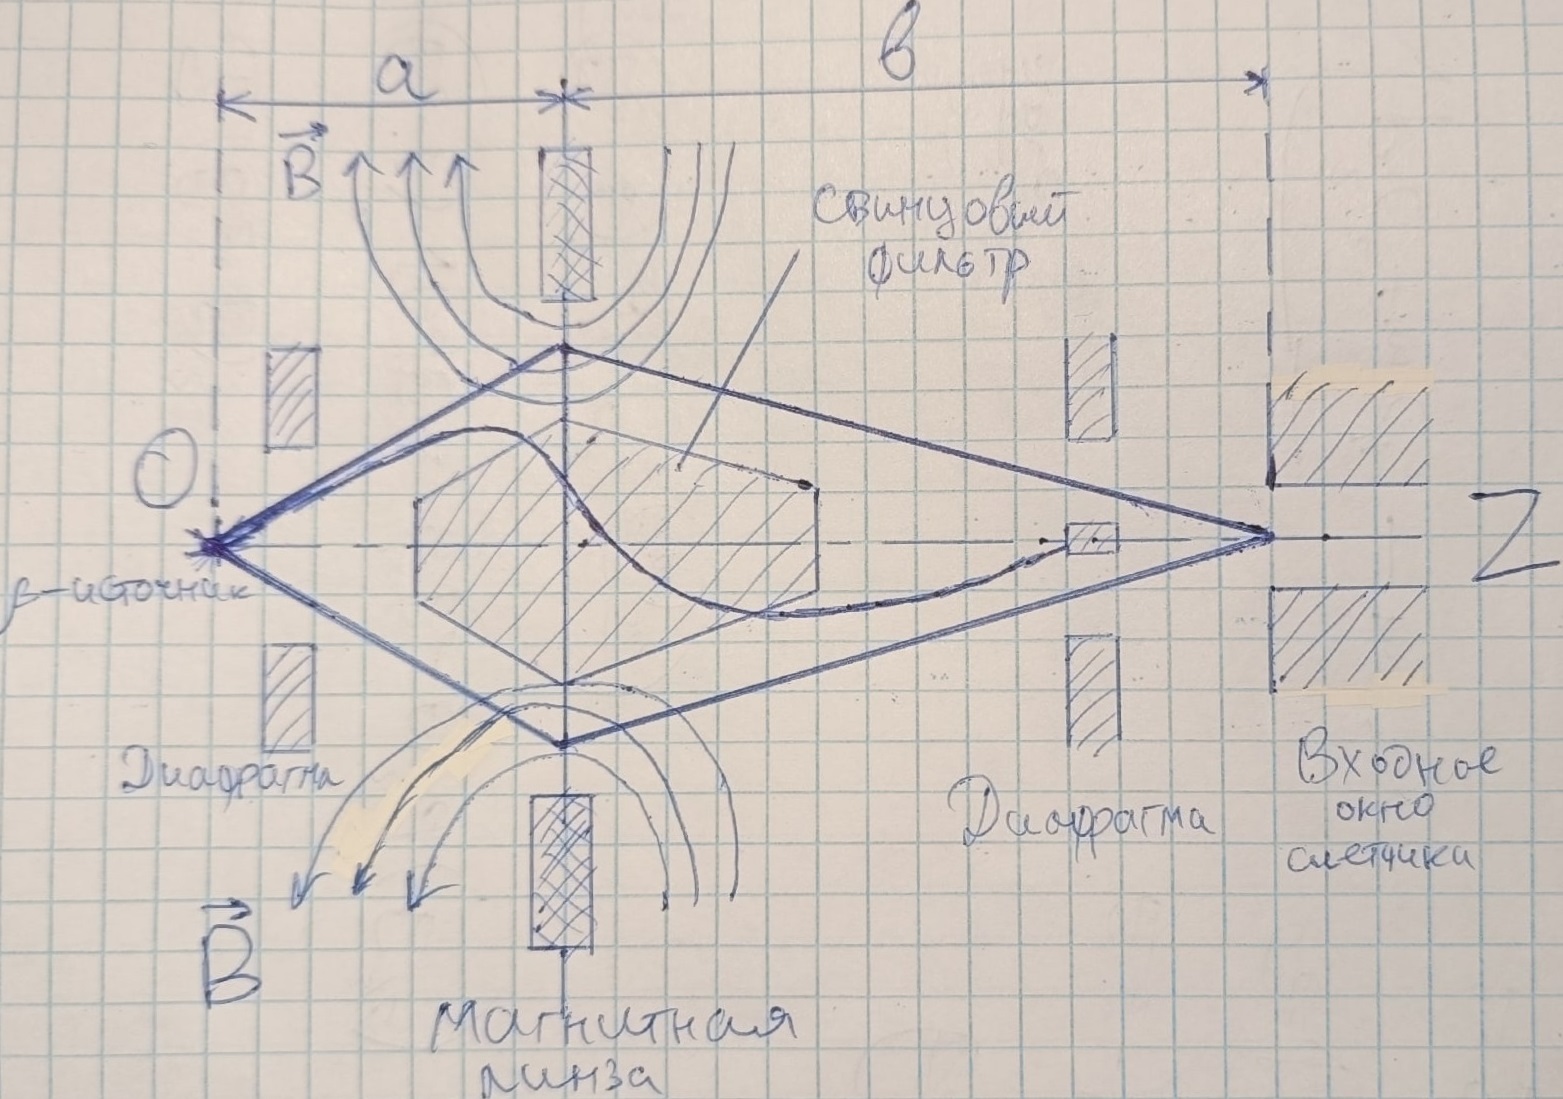 a
в
B
Свинцовый
фильтр
O
Z
β-источник
Диафрагма
Диафрагма
Входное
окно
счетчика
B
Магнитная
линза